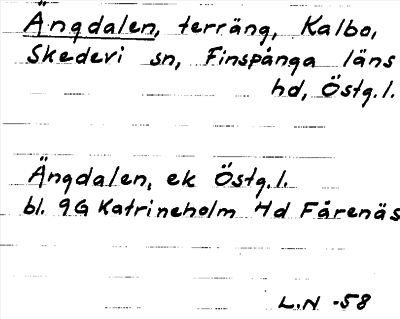 Ängdalen, terräng, Kalbo,
Skedevi sn, Finspånga läns
hd, Östg.l.
Ängdalen, ek Östg.l.
bl. 9G Katrineholm 4d Fårenäs
L.N -58